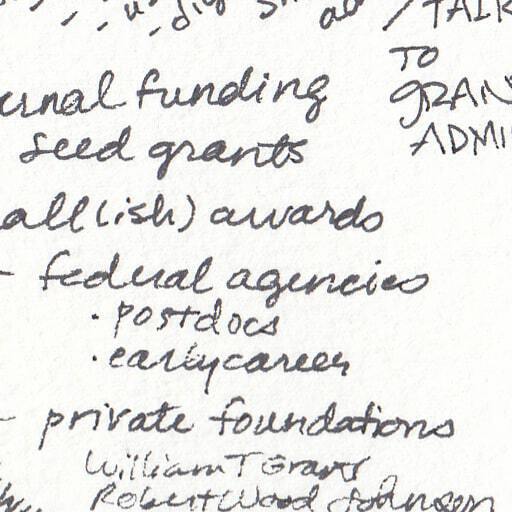 TO
ernal funding
GRAN
seed grants
ADMI
all(ish) awards
- federal agencies
· postdocs
· early career
- private foundations
William T Grant
Robert Wood Johnson